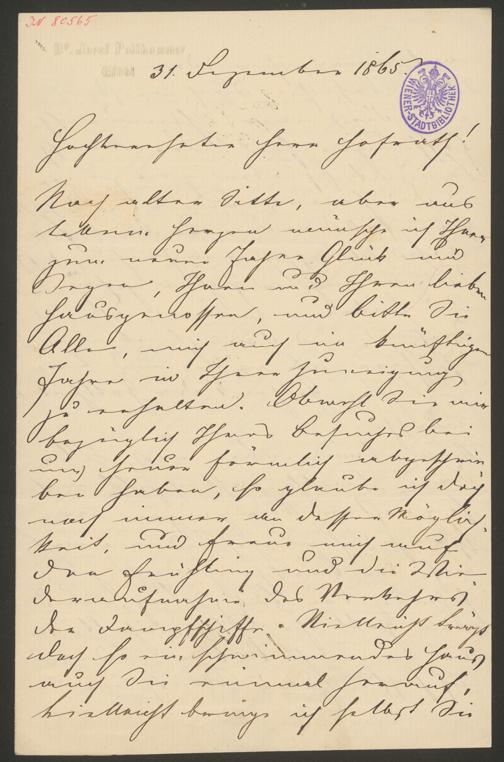 JN 80565
Dr. Josef Pollhammer
31. Dezember 1865.
WIENER STADTBIBLIOTHEK
Hochverehrter Herr Hofrath!
Nach alter Sitte, aber aus
Herzen wünsche ich Ihnen
zum neuen Jahre Glück und
Segen, Ihnen und Ihren lieben
Hausgenossen, und bitte Sie
Alle, mich auch im künftigen
Jahre in Ihrer Zuneigung
zu erhalten. Obwohl Sie mir
bezüglich Ihres Besuches bei
uns heuer förmlich abgeschrie-
ben haben, so glaube ich doch
noch immer an dessen Möglich-
keit, und freue mich auf
den Frühling und die Wie-
deraufnahme des Verkehrs
der Dampfschiffe. Vielleicht trägt
doch so ein schwimmendes Haus
auch Sie einmal herauf,
vielleicht bringe ich selbst Sie